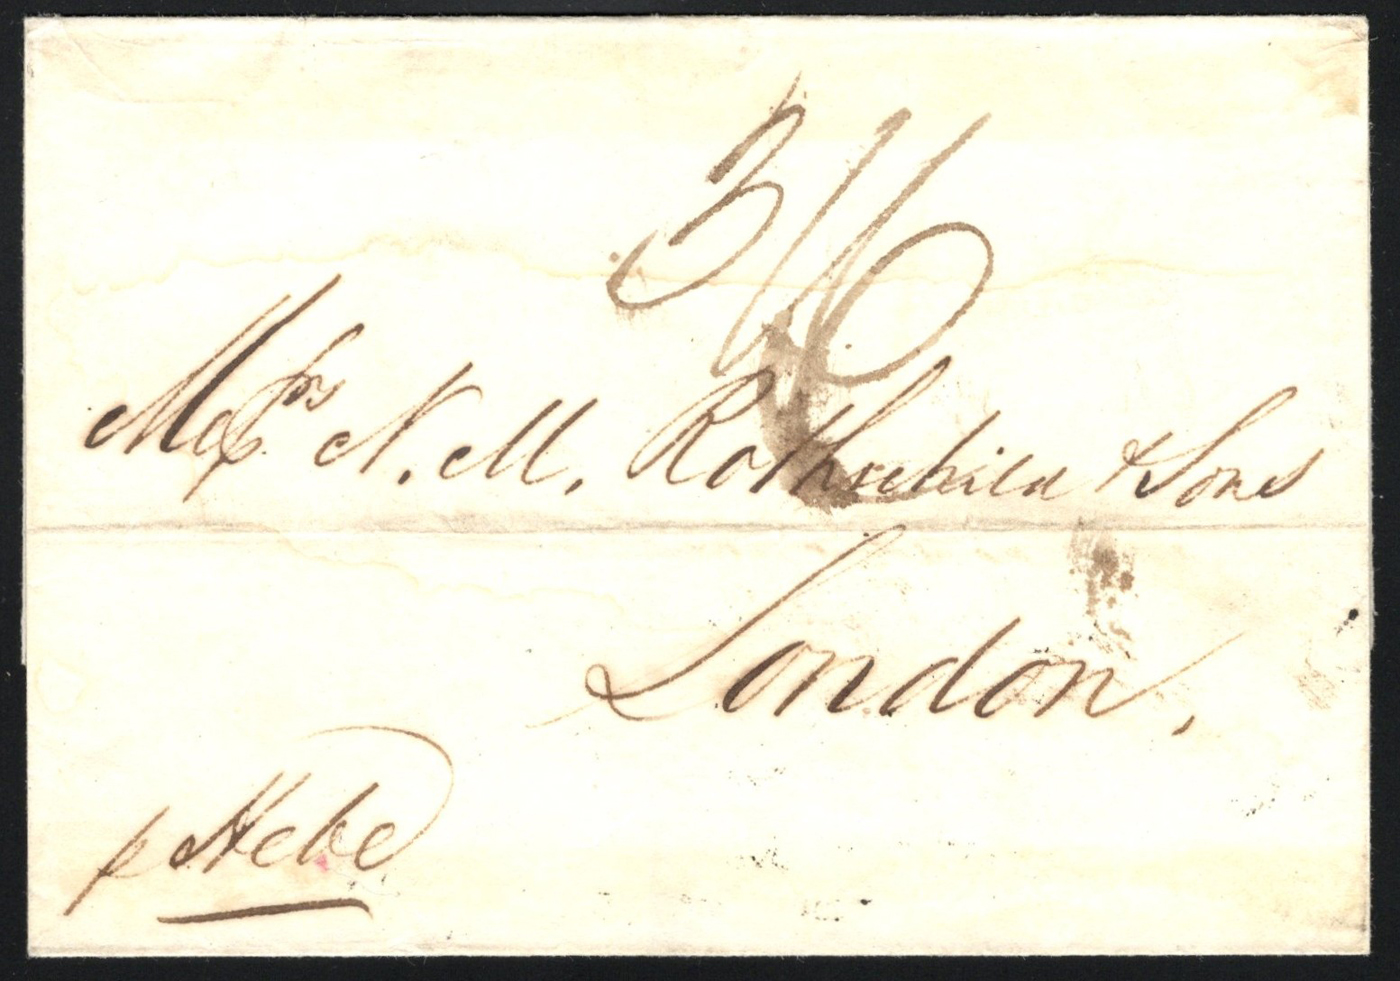 3/6
Messrs N. M. Rothschild & Sons
London,
p Hebe